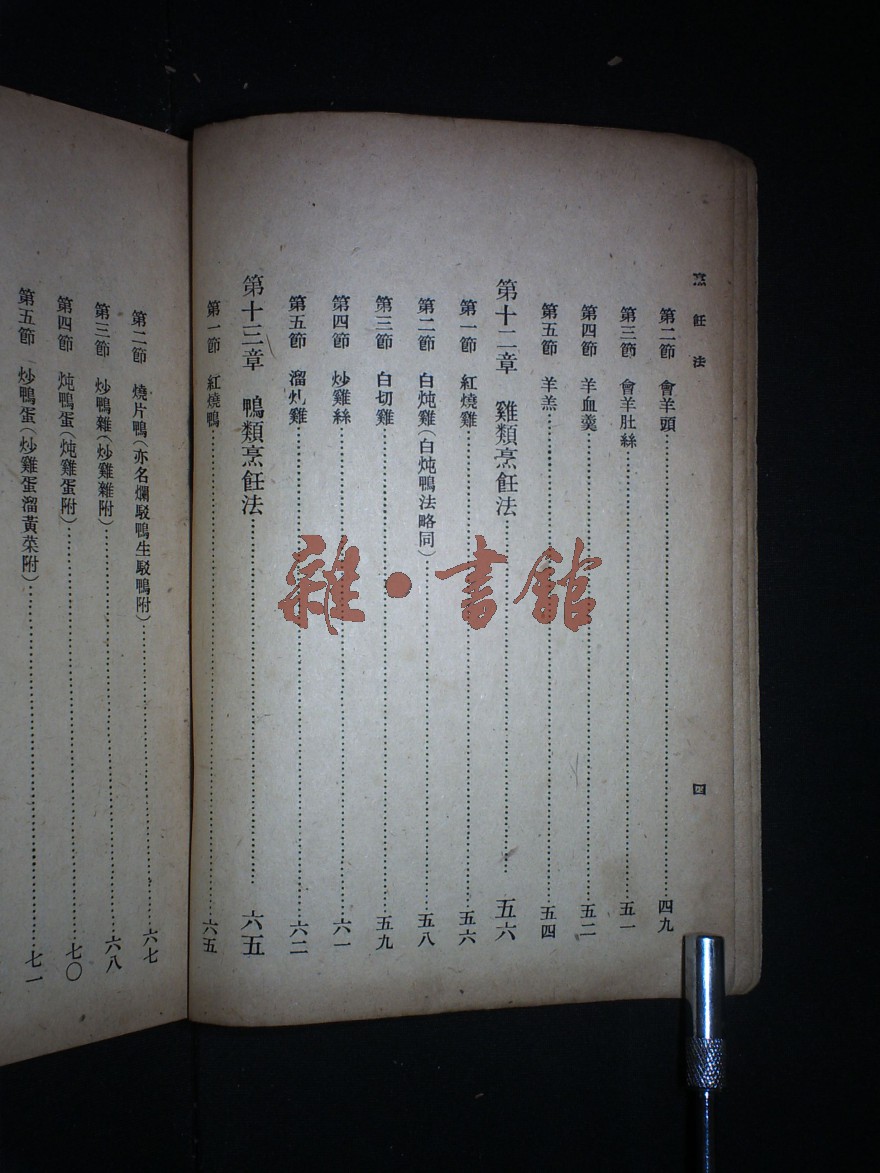 烹飪法
四
第二節 會羊頭 四九
第三節 會羊肚絲 五一
第四節 羊血羹 五二
第五節 羊羔 五四
第十二章 雞類烹飪法 五六
第一節 紅燒雞 五六
第二節 白炖雞(白炖鴨法略同) 五八
第三節 白切雞 五九
第四節 炒雞絲 六一
第五節 溜炸雞 六二
第十三章 鴨類烹飪法 六五
第一節 紅燒鴨 六五
第二節 燒片鴨(亦名爛駁鴨生駁鴨附) 六七
第三節 炒鴨雜(炒雞雜附) 六八
第四節 炖鴨蛋(炖雞蛋附) 七〇
第五節 炒鴨蛋(炒雞蛋溜黃菜附) 七一
雜·書館